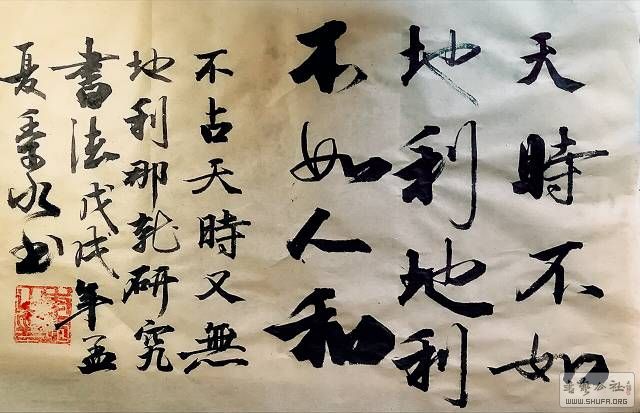 天時不如
地利地利
不如人和
不占天時又無
地利那就研究
書法戊戌年孟
夏季水书
書藝公社
WWW.SHUFA.ORG